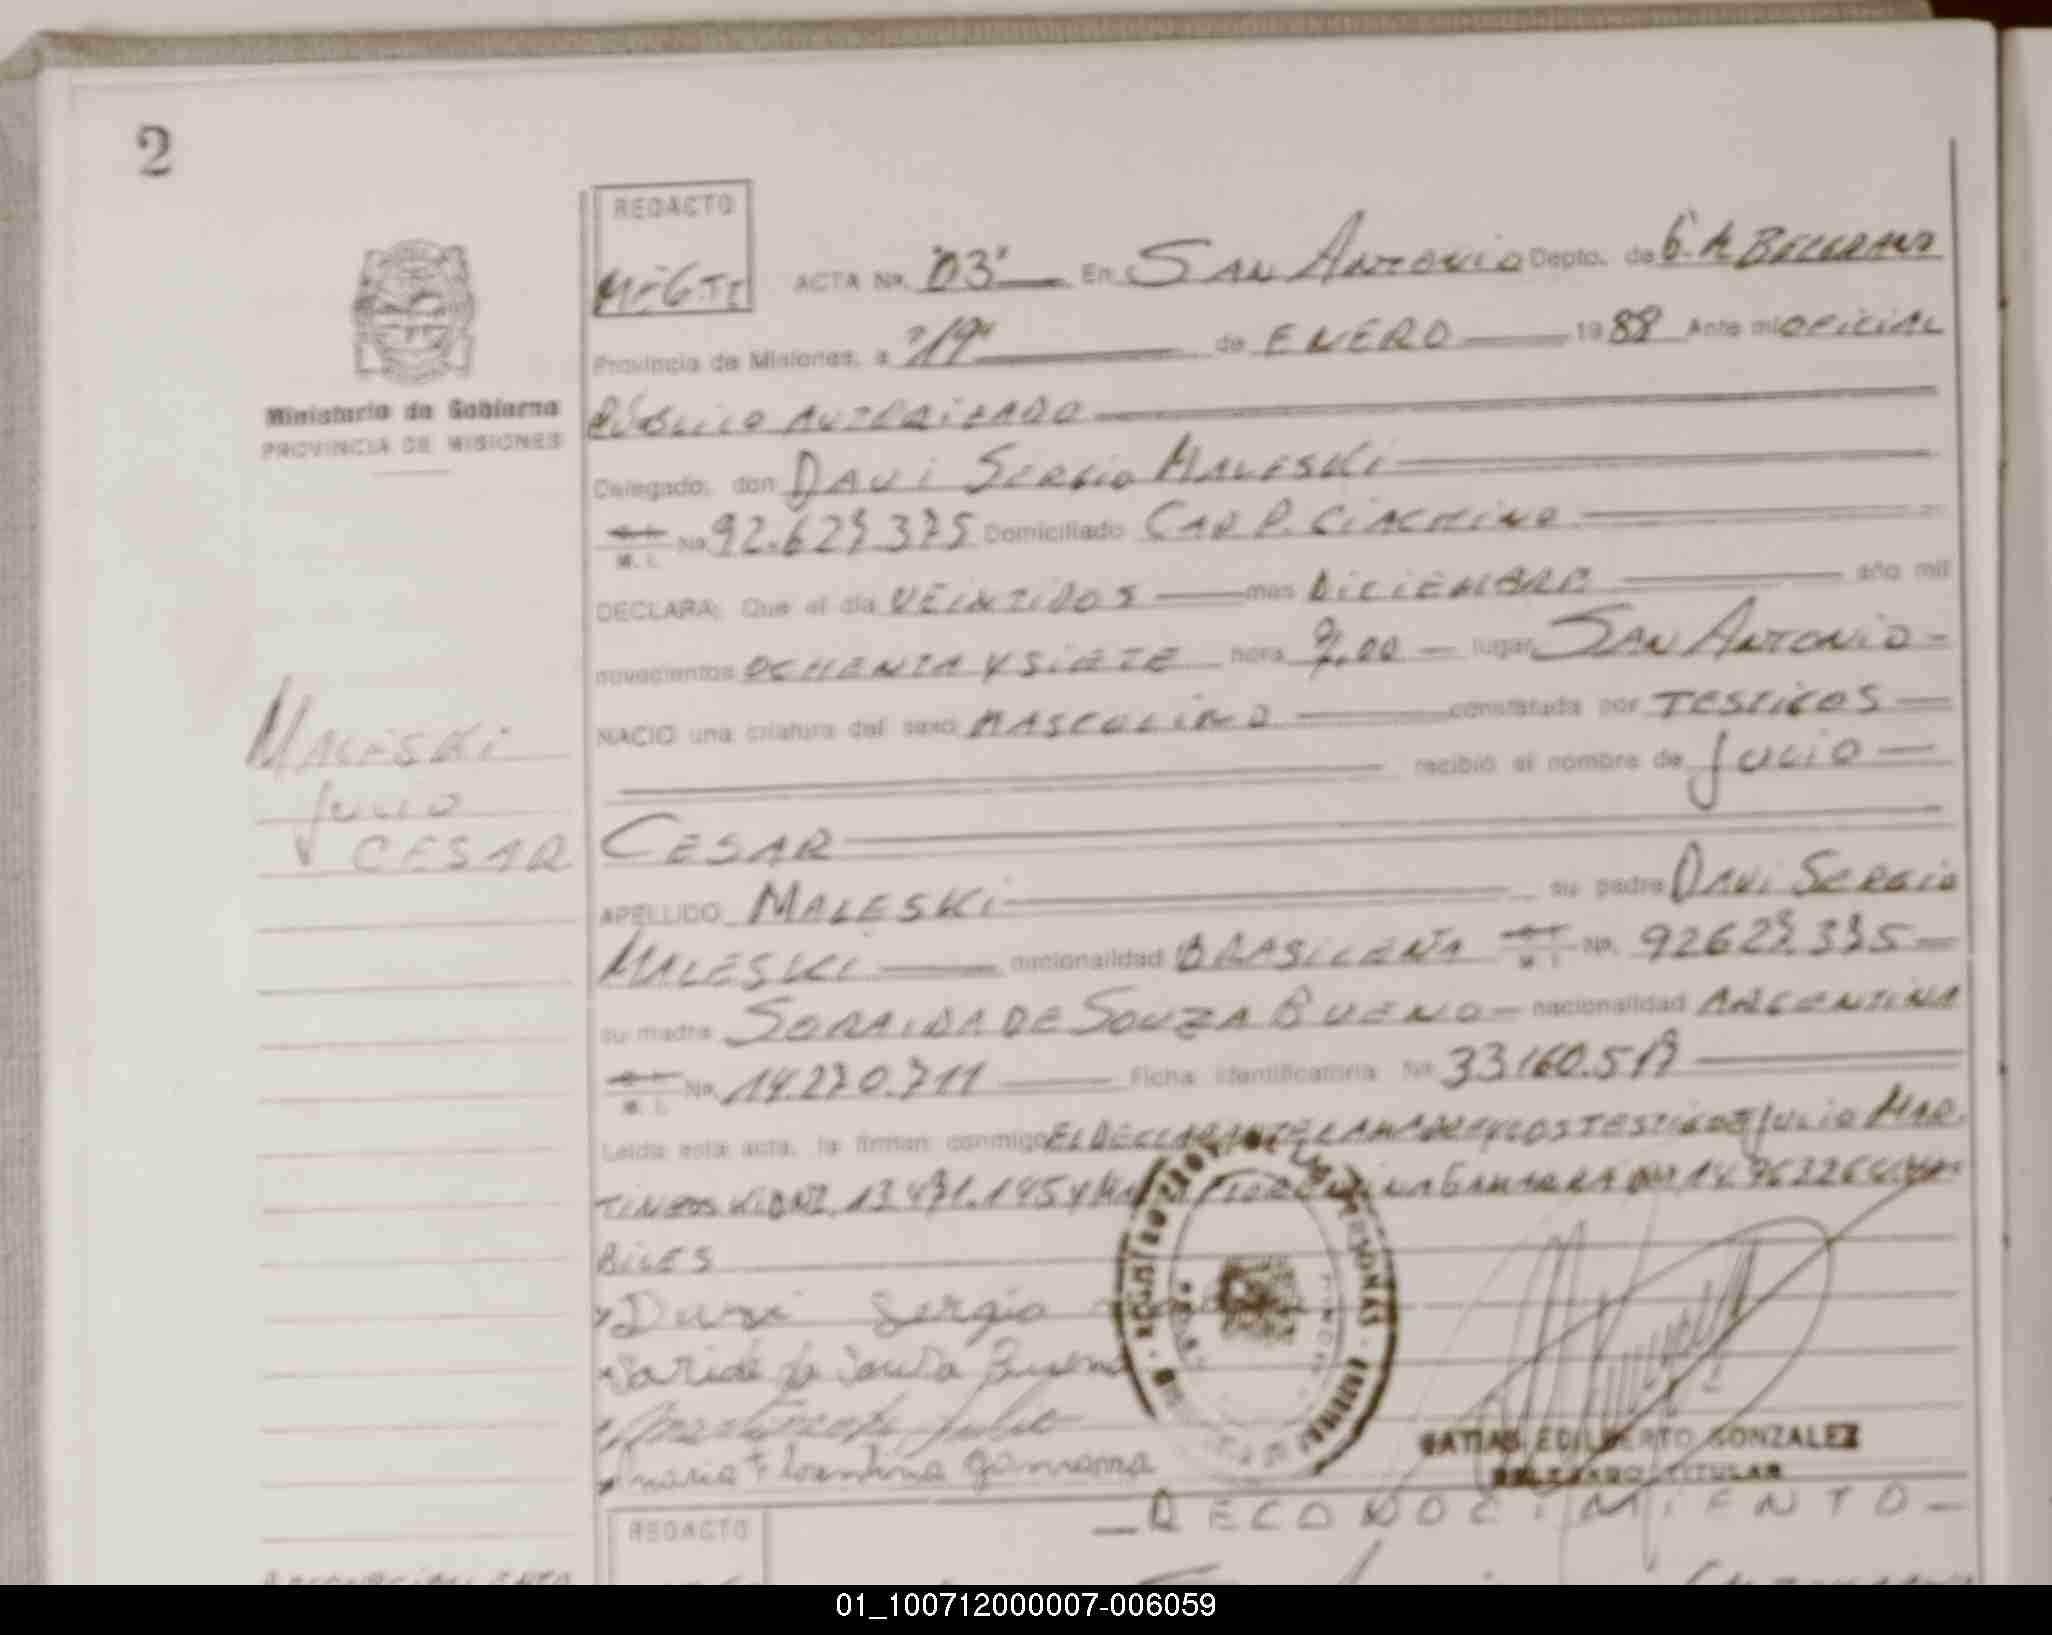 2
REDACTO
ACTA No. "03" En SAN ANTONIO Depto. de G. M BELGRANO
Provincia de Misiones, a "19" de ENERO 1988 Ante mi OFICIAL
Ministerio de Gobierno
PROVINCIA DE MISIONES
PÚBLICO AUTORIZADO
Delegado, don DAVI SERGIO MALESKI
M. I. No 92.627.375 Domiciliado CAP P. CIACHINO
DECLARA: Que el día VEINTIDOS mes DICIEMBRE año mil
novecientos OCHENTA Y SIETE hora 7,00 lugar SAN ANTONIO
NACIO una criatura del sexo MASCULINO constatada por TESTIGOS
recibió el nombre de JULIO
CESAR
MALESKI
JULIO
CESAR
APELLIDO MALESKI su padre DAVI SERGIO
MALESKI nacionalidad BRASILEÑA M. I. No. 92627.375
su madre SORAIDA DE SOUZA BUENO nacionalidad ARGENTINA
M. I. No. 14.270.711 Ficha identificatoria No 33160.517
Leida esta acta, la firman conmigo EL DECLARANTE LA MADRE Y LOS TESTIGOS JULIO MAR
TINEZ 13.471.145 Y GAMARRA 14.963226
BILES
Davi Sergio
de Souza Bueno
Julio
maria Florentina gamarra
MATIAS EDILBERTO GONZALEZ
DELEGADO TITULAR
REDACTO
RECONOCIMIENTO
01_100712000007-006059